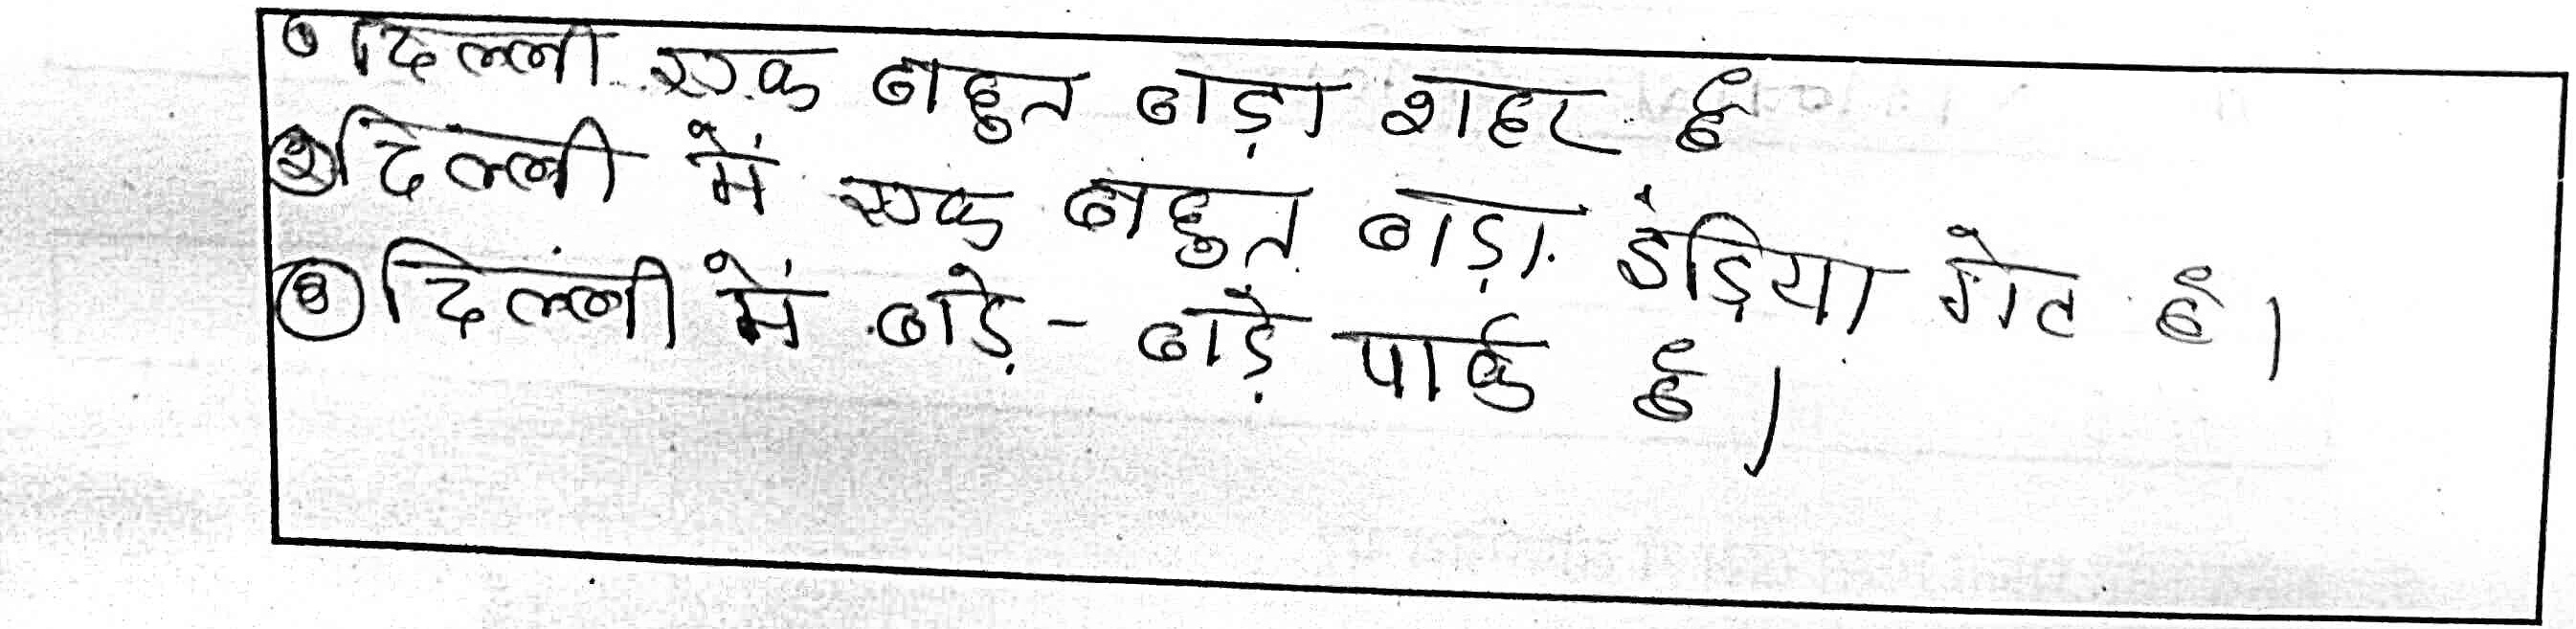 ① दिल्ली एक बहुत बड़ा शहर है
② दिल्ली में एक बहुत बड़ा इंड़िया गेट है।
③ दिल्ली में बड़े - बड़े पार्क है।